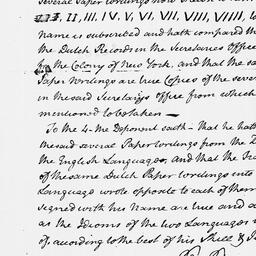 several Paper
I. II, III. IV. V. VI. VII. VIII, VIIII,
Name is subscribed and hath compared th
the Dutch Records in the Secretaries Office
for the Colony of New York, and that the sa
Paper Wordings are true Copies of the severa
in the said Secretarys office from which
mentioned to be taken —
To the 4-the Deponent saith - that he hath
the said several Paper wordings from the D
the English Languages, and that the Tra
of the same Dutch Paper wordings into
Language wrote opposite to each of them
signed with his Name are true and a
as the Idioms of the two Languages
of, according to the best of his Skill & J